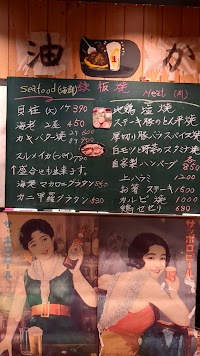 油
か
Seafood (海鮮) 鉄板焼 Meat (肉)
貝柱 (大) 1ヶ390
海老 2尾 450
カキバター焼
スルメイカ
↑盛合せも出来ます。
海老マカロニグラタン 850
カニ甲羅グラタン
地鶏塩焼
ステーキ豚のとん平焼
厚切り豚バラスパイス焼
白モツと野菜のスタミナ焼
自家製ハンバーグ 850
上ハラミ 1200
和牛ステーキ 1500
カルビ焼 1000
鶏せせり 680
サッポロビール
サッポロビール